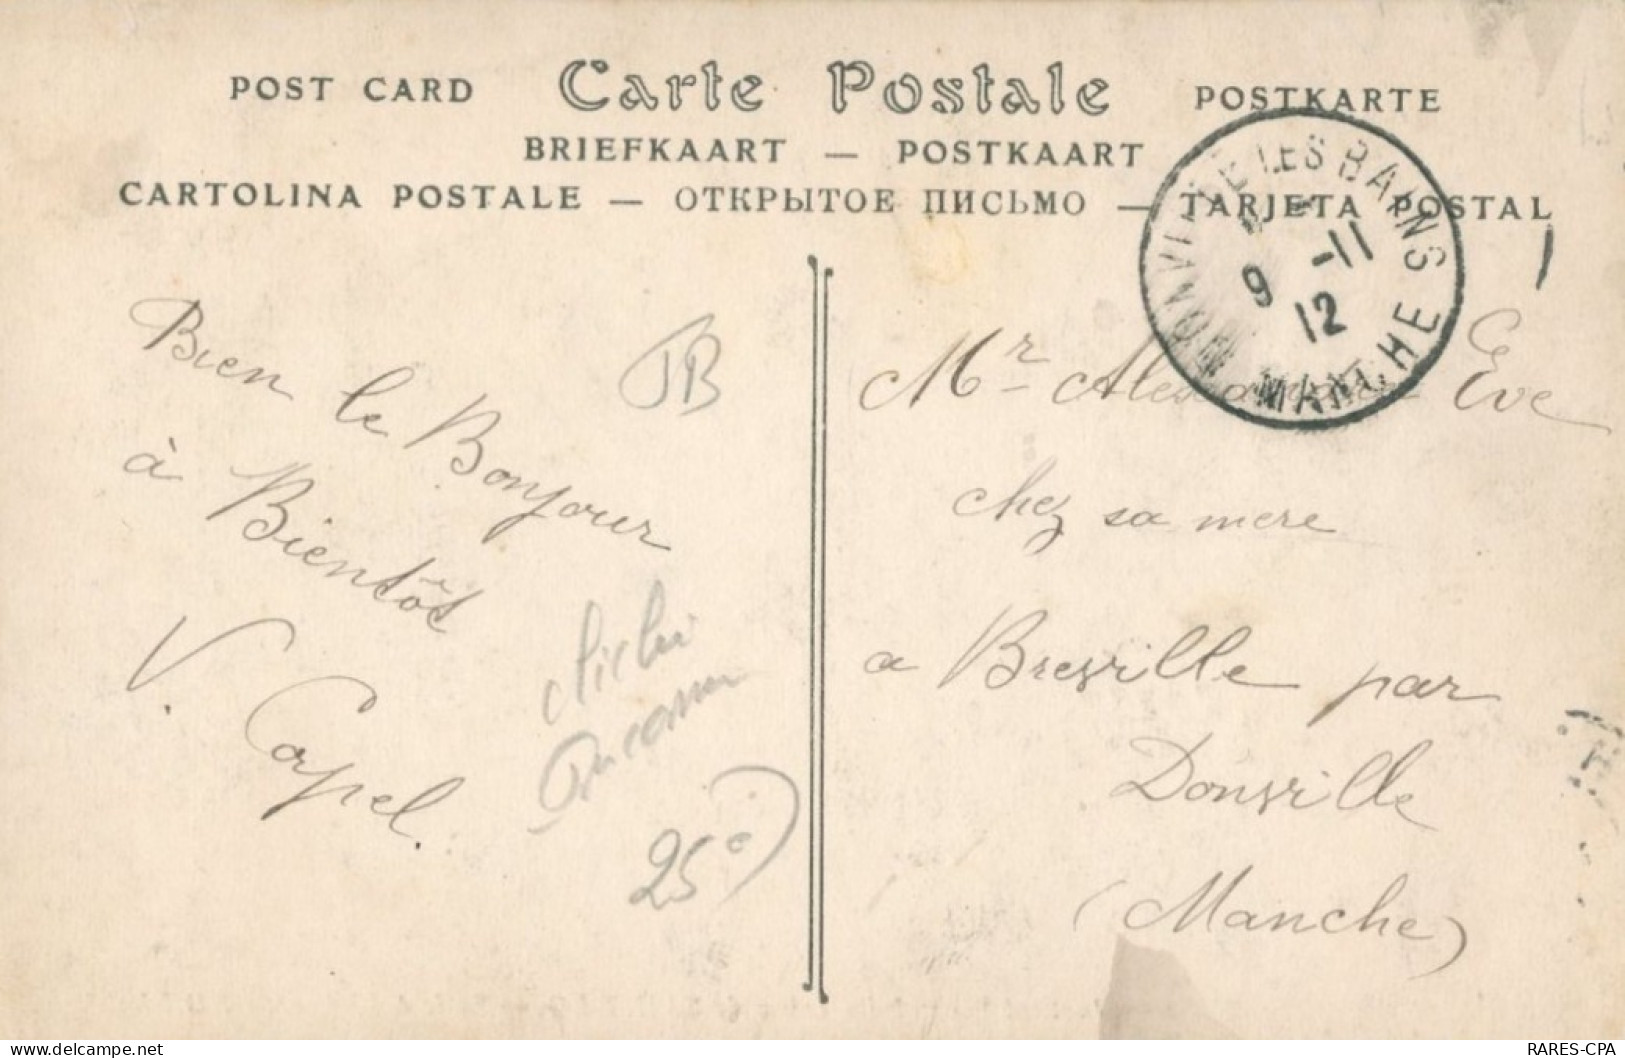 POST CARD Carte Postale POSTKARTE
BRIEFKAART — POSTKAART
CARTOLINA POSTALE — ОТКРЫТОЕ ПИСЬМО — TARJETA POSTAL
DONVILLE LES BAINS
9 -11
12
MANCHE
Bien le Bonjour
à Bientôt
V. Capel.
JB
25 €
Mr Alexandre Eve
chez sa mere
a Breville par
Donville
(Manche)
delcampe.net
RARES-CPA